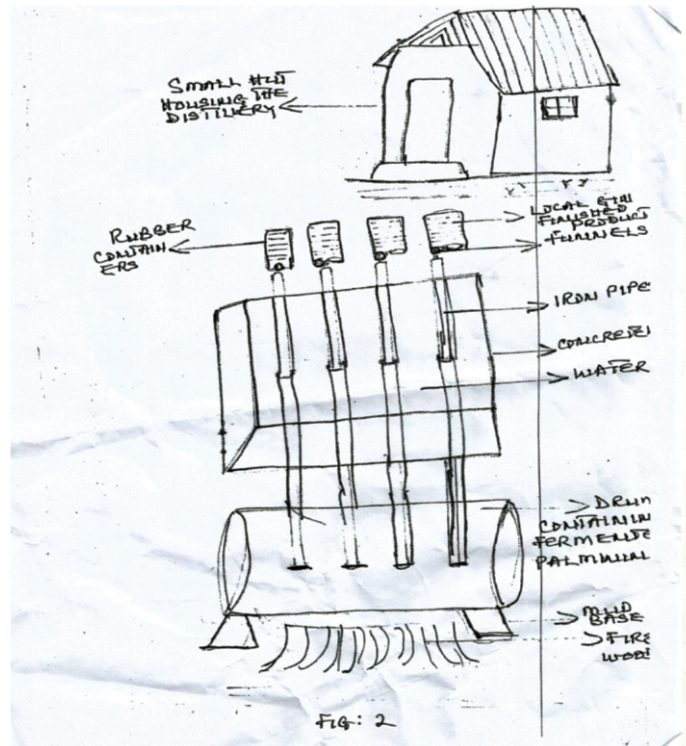 SMALL HUT
HOUSING THE
DISTILLERY
RUBBER
CONTAIN
ERS
LOCAL GIN
FINISHED
PRODUCT
FUNNELS
IRON PIPE
CONCRETE
WATER
DRUM
CONTAININ
FERMENTE
PALMWINE
MUD
BASE
FIRE
WOOD
FIG: 2